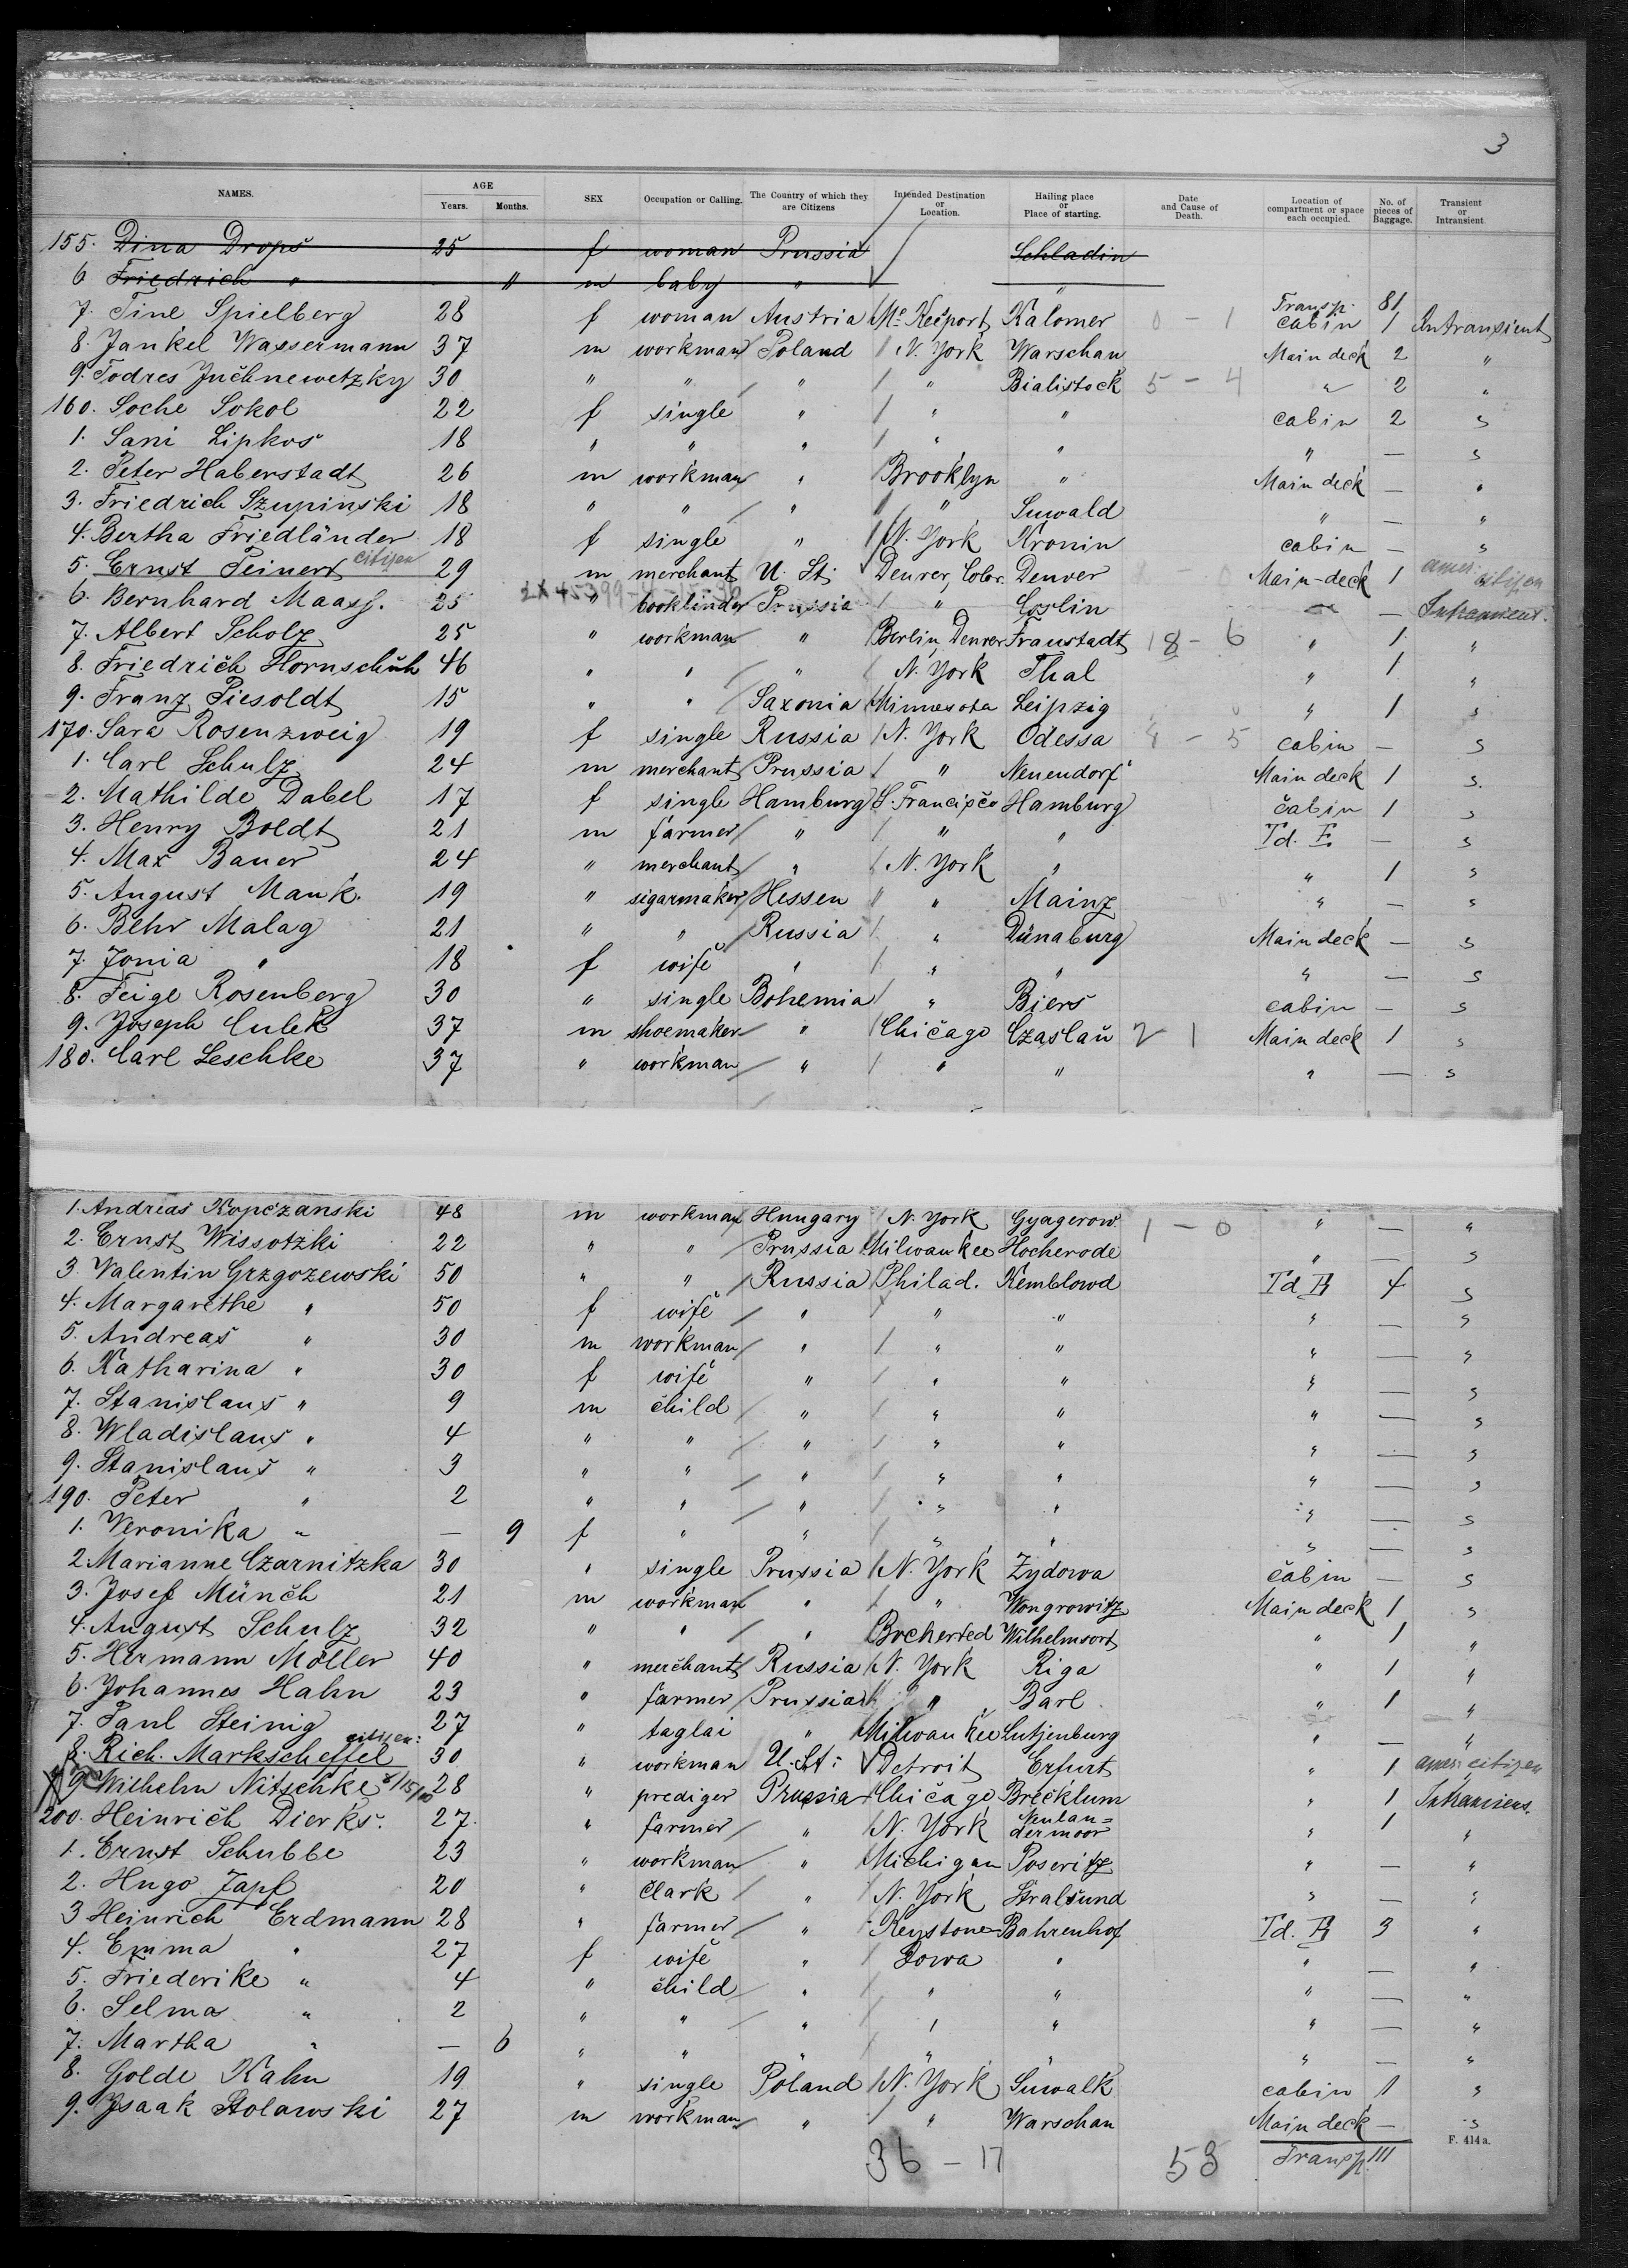 3
NAMES. AGE Years. Months. SEX Occupation or Calling. The Country of which they are Citizens Intended Destination or Location. Hailing place or Place of starting. Date and Cause of Death. Location of compartment or space each occupied. No. of pieces of Baggage. Transient or Intransient.
155. Dina Drops 25 f woman Prussia Schladin
6 Friedrich " " m baby " "
Transp. 81
7. Tine Spielberg 28 f woman Austria Mc Keesport Kalomer 0 - 1 cabin 1 Intransient
8. Jankel Wassermann 37 m workman Poland N. York Warschau Main deck 2 "
9. Todres Juchnewetzky 30 " " " " Bialistock 5 - 4 " 2 "
160. Soche Sokol 22 f single " " " cabin 2 "
1. Sani Lipkos 18 " " " " " " — "
2. Peter Haberstadt 26 m workman " Brooklyn " Main deck — "
3. Friedrich Szupinski 18 " " " " Suwald " — "
4. Bertha Friedländer 18 f single " N. York Kronin cabin — "
5. Ernst Peinert citizen 29 m merchant U. St. Denver, Color. Denver Main-deck 1 amer. citizen
6. Bernhard Maass. 25 " bookbinder Prussia " Coslin " — Intransient.
7. Albert Scholz 25 " workman " Berlin, Denver Fraustadt 18 - 6 " 1 "
8. Friedrich Hornschuh 46 " " " N. York Thal " 1 "
9. Franz Piesoldt 15 " " Saxonia Minnesota Leipzig " 1 "
170. Sara Rosenzweig 19 f single Russia N. York Odessa 4 - 5 cabin — "
1. Carl Schulz 24 m merchant Prussia " Neuendorf Main deck 1 "
2. Mathilde Dabel 17 f single Hamburg S. Francisco Hamburg cabin 1 "
3. Henry Boldt 21 m farmer " " " Td. E — "
4. Max Bauer 24 " merchant " N. York " " 1 "
5. August Mank. 19 " sigarmaker Hessen " Mainz " — "
6. Behr Malag 21 " " Russia " Dünaburg Main deck — "
7. Jonia " 18 f wife " " " " — "
8. Feige Rosenberg 30 " single Bohemia " Biers cabin — "
9. Joseph Culek 37 m shoemaker " Chicago Czaslau 2 1 Main deck 1 "
180. Carl Leschke 37 " workman " " " " — "
1. Andreas Kopczanski 48 m workman Hungary N. York Gyagerow 1 - 0 " — "
2. Ernst Wissotzki 22 " " Prussia Milwaukee Hocherode " — "
3 Valentin Grzgozewski 50 " " Russia Philad. Kemblowd Td H 4 "
4. Margarethe " 50 f wife " " " " — "
5. Andreas " 30 m workman " " " " — "
6. Katharina " 30 f wife " " " " — "
7. Stanislaus " 9 m child " " " " — "
8. Wladislaus " 4 " " " " " " — "
9. Stanislaus " 3 " " " " " " — "
190. Peter " 2 " " " " " " — "
1. Veronika " — 9 f " " " " " — "
2 Marianne Czarnitzka 30 " single Prussia N. York Zydowa cabin — "
3. Josef Münch 21 m workman " " Wongrowitz Main deck 1 "
4. August Schulz 32 " " " Bocherted Wilhelmsort " 1 "
5. Hermann Möller 40 " merchant Russia N. York Riga " 1 "
6. Johannes Hahn 23 " farmer Prussia " Barl " 1 "
7. Paul Steinig 27 " taglai " Milwaukee Lutjenburg " — "
8. Rich. Markscheffel citizen: 30 " workman U. St: Detroit Erfurt " 1 amer: citizen
9 Wilhelm Nitschke 28 " prediger Prussia Chicago Brecklum " 1 Intransient.
200. Heinrich Dierks. 27. " farmer " N. York Neulan=dermoor " 1 "
1. Ernst Schubbe 23 " workman " Michigan Poseritz " — "
2. Hugo Zapf 20 " clark " N. York Stralsund " — "
3 Heinrich Erdmann 28 " farmer " Keystone Bahrenhof Td. H 3 "
4. Emma " 27 f wife " Iowa " " — "
5. Friederike " 4 " child " " " " — "
6. Selma " 2 " " " " " " — "
7. Martha " — 6 " " " " " " — "
8. Golde Kahn 19 " single Poland N. York Suwalk cabin 1 "
9. Isaak Stolawski 27 m workman " " Warschau Main deck — "
F. 414 a.
36 - 17 53 Transp. III